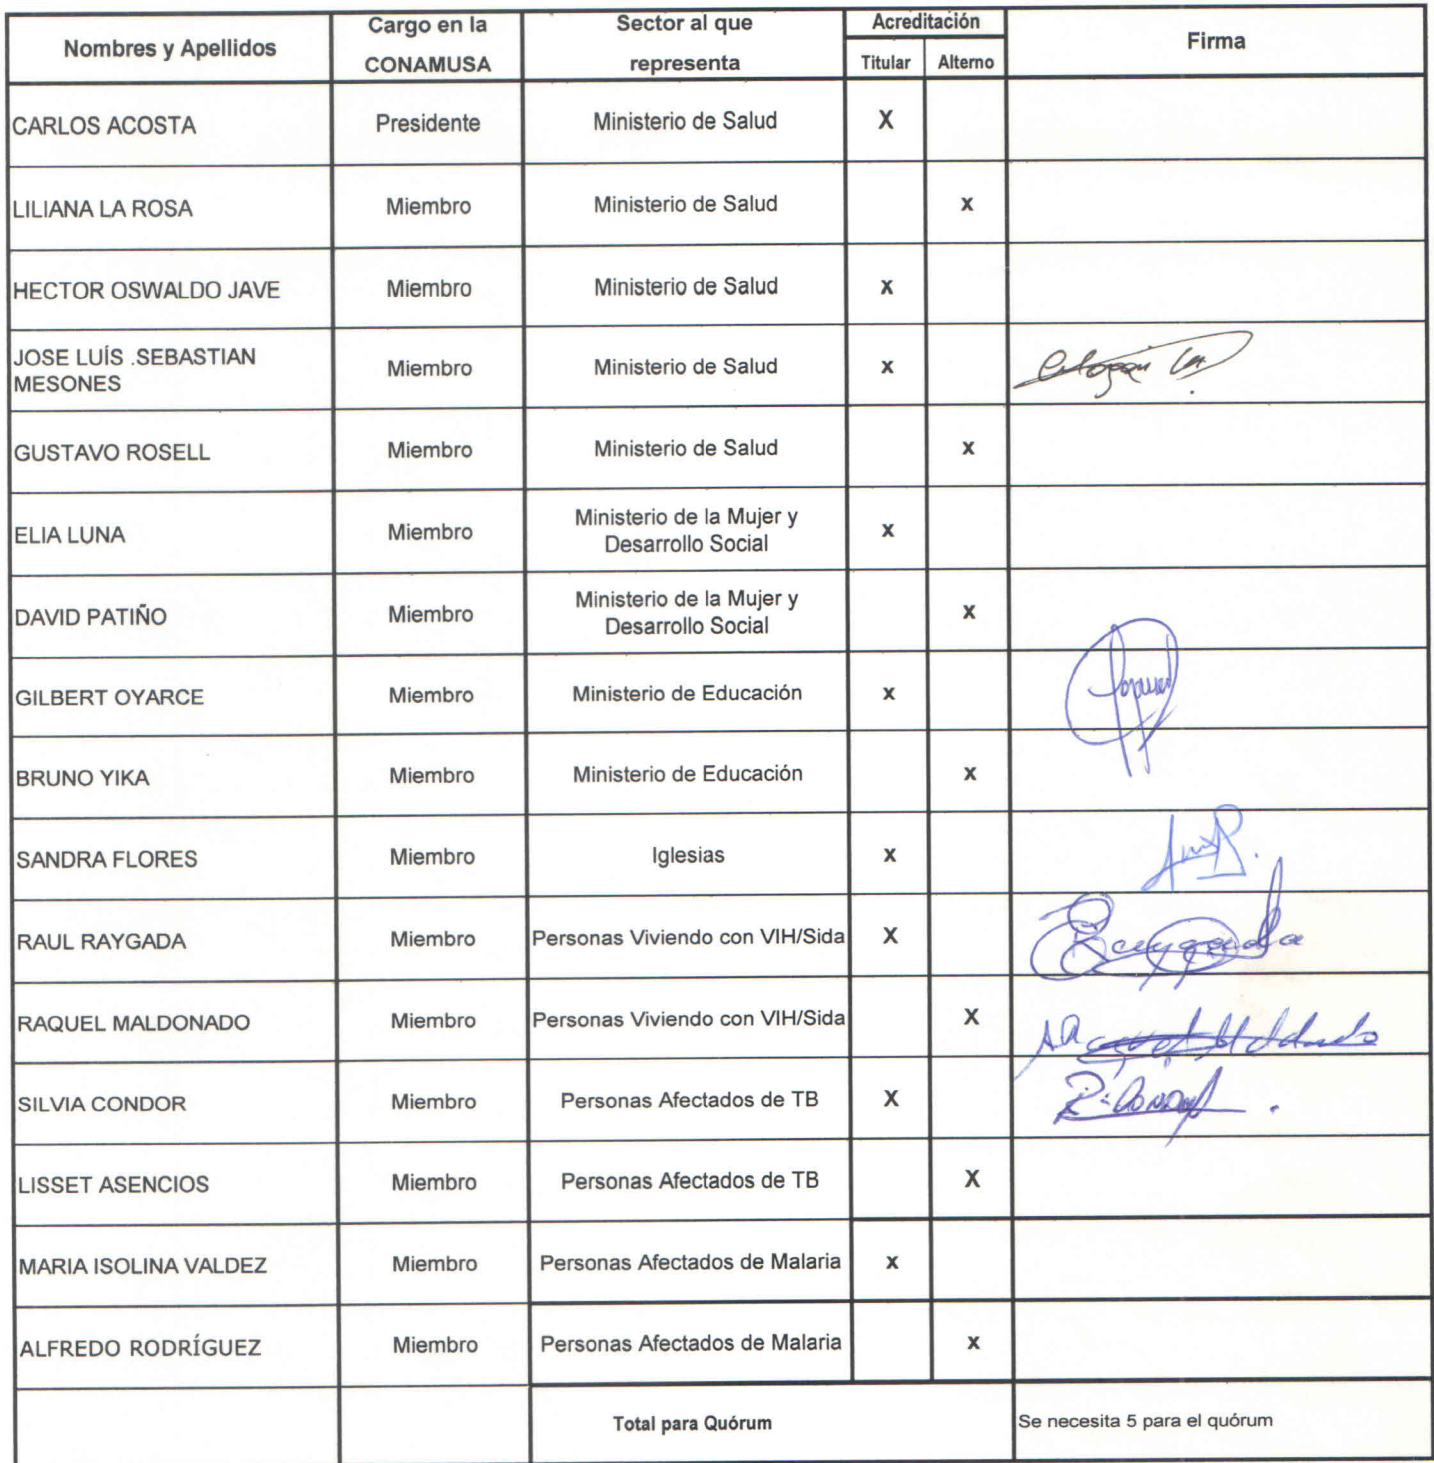 Nombres y Apellidos
Cargo en la
CONAMUSA
Sector al que
representa
Acreditación
Titular Alterno
Firma
CARLOS ACOSTA Presidente Ministerio de Salud X
LILIANA LA ROSA Miembro Ministerio de Salud x
HECTOR OSWALDO JAVE Miembro Ministerio de Salud x
JOSE LUÍS .SEBASTIAN
MESONES Miembro Ministerio de Salud x
GUSTAVO ROSELL Miembro Ministerio de Salud x
ELIA LUNA Miembro Ministerio de la Mujer y
Desarrollo Social x
DAVID PATIÑO Miembro Ministerio de la Mujer y
Desarrollo Social x
GILBERT OYARCE Miembro Ministerio de Educación x
BRUNO YIKA Miembro Ministerio de Educación x
SANDRA FLORES Miembro Iglesias x
RAUL RAYGADA Miembro Personas Viviendo con VIH/Sida X
RAQUEL MALDONADO Miembro Personas Viviendo con VIH/Sida X
SILVIA CONDOR Miembro Personas Afectados de TB X
LISSET ASENCIOS Miembro Personas Afectados de TB X
MARIA ISOLINA VALDEZ Miembro Personas Afectados de Malaria x
ALFREDO RODRÍGUEZ Miembro Personas Afectados de Malaria x
Total para Quórum Se necesita 5 para el quórum